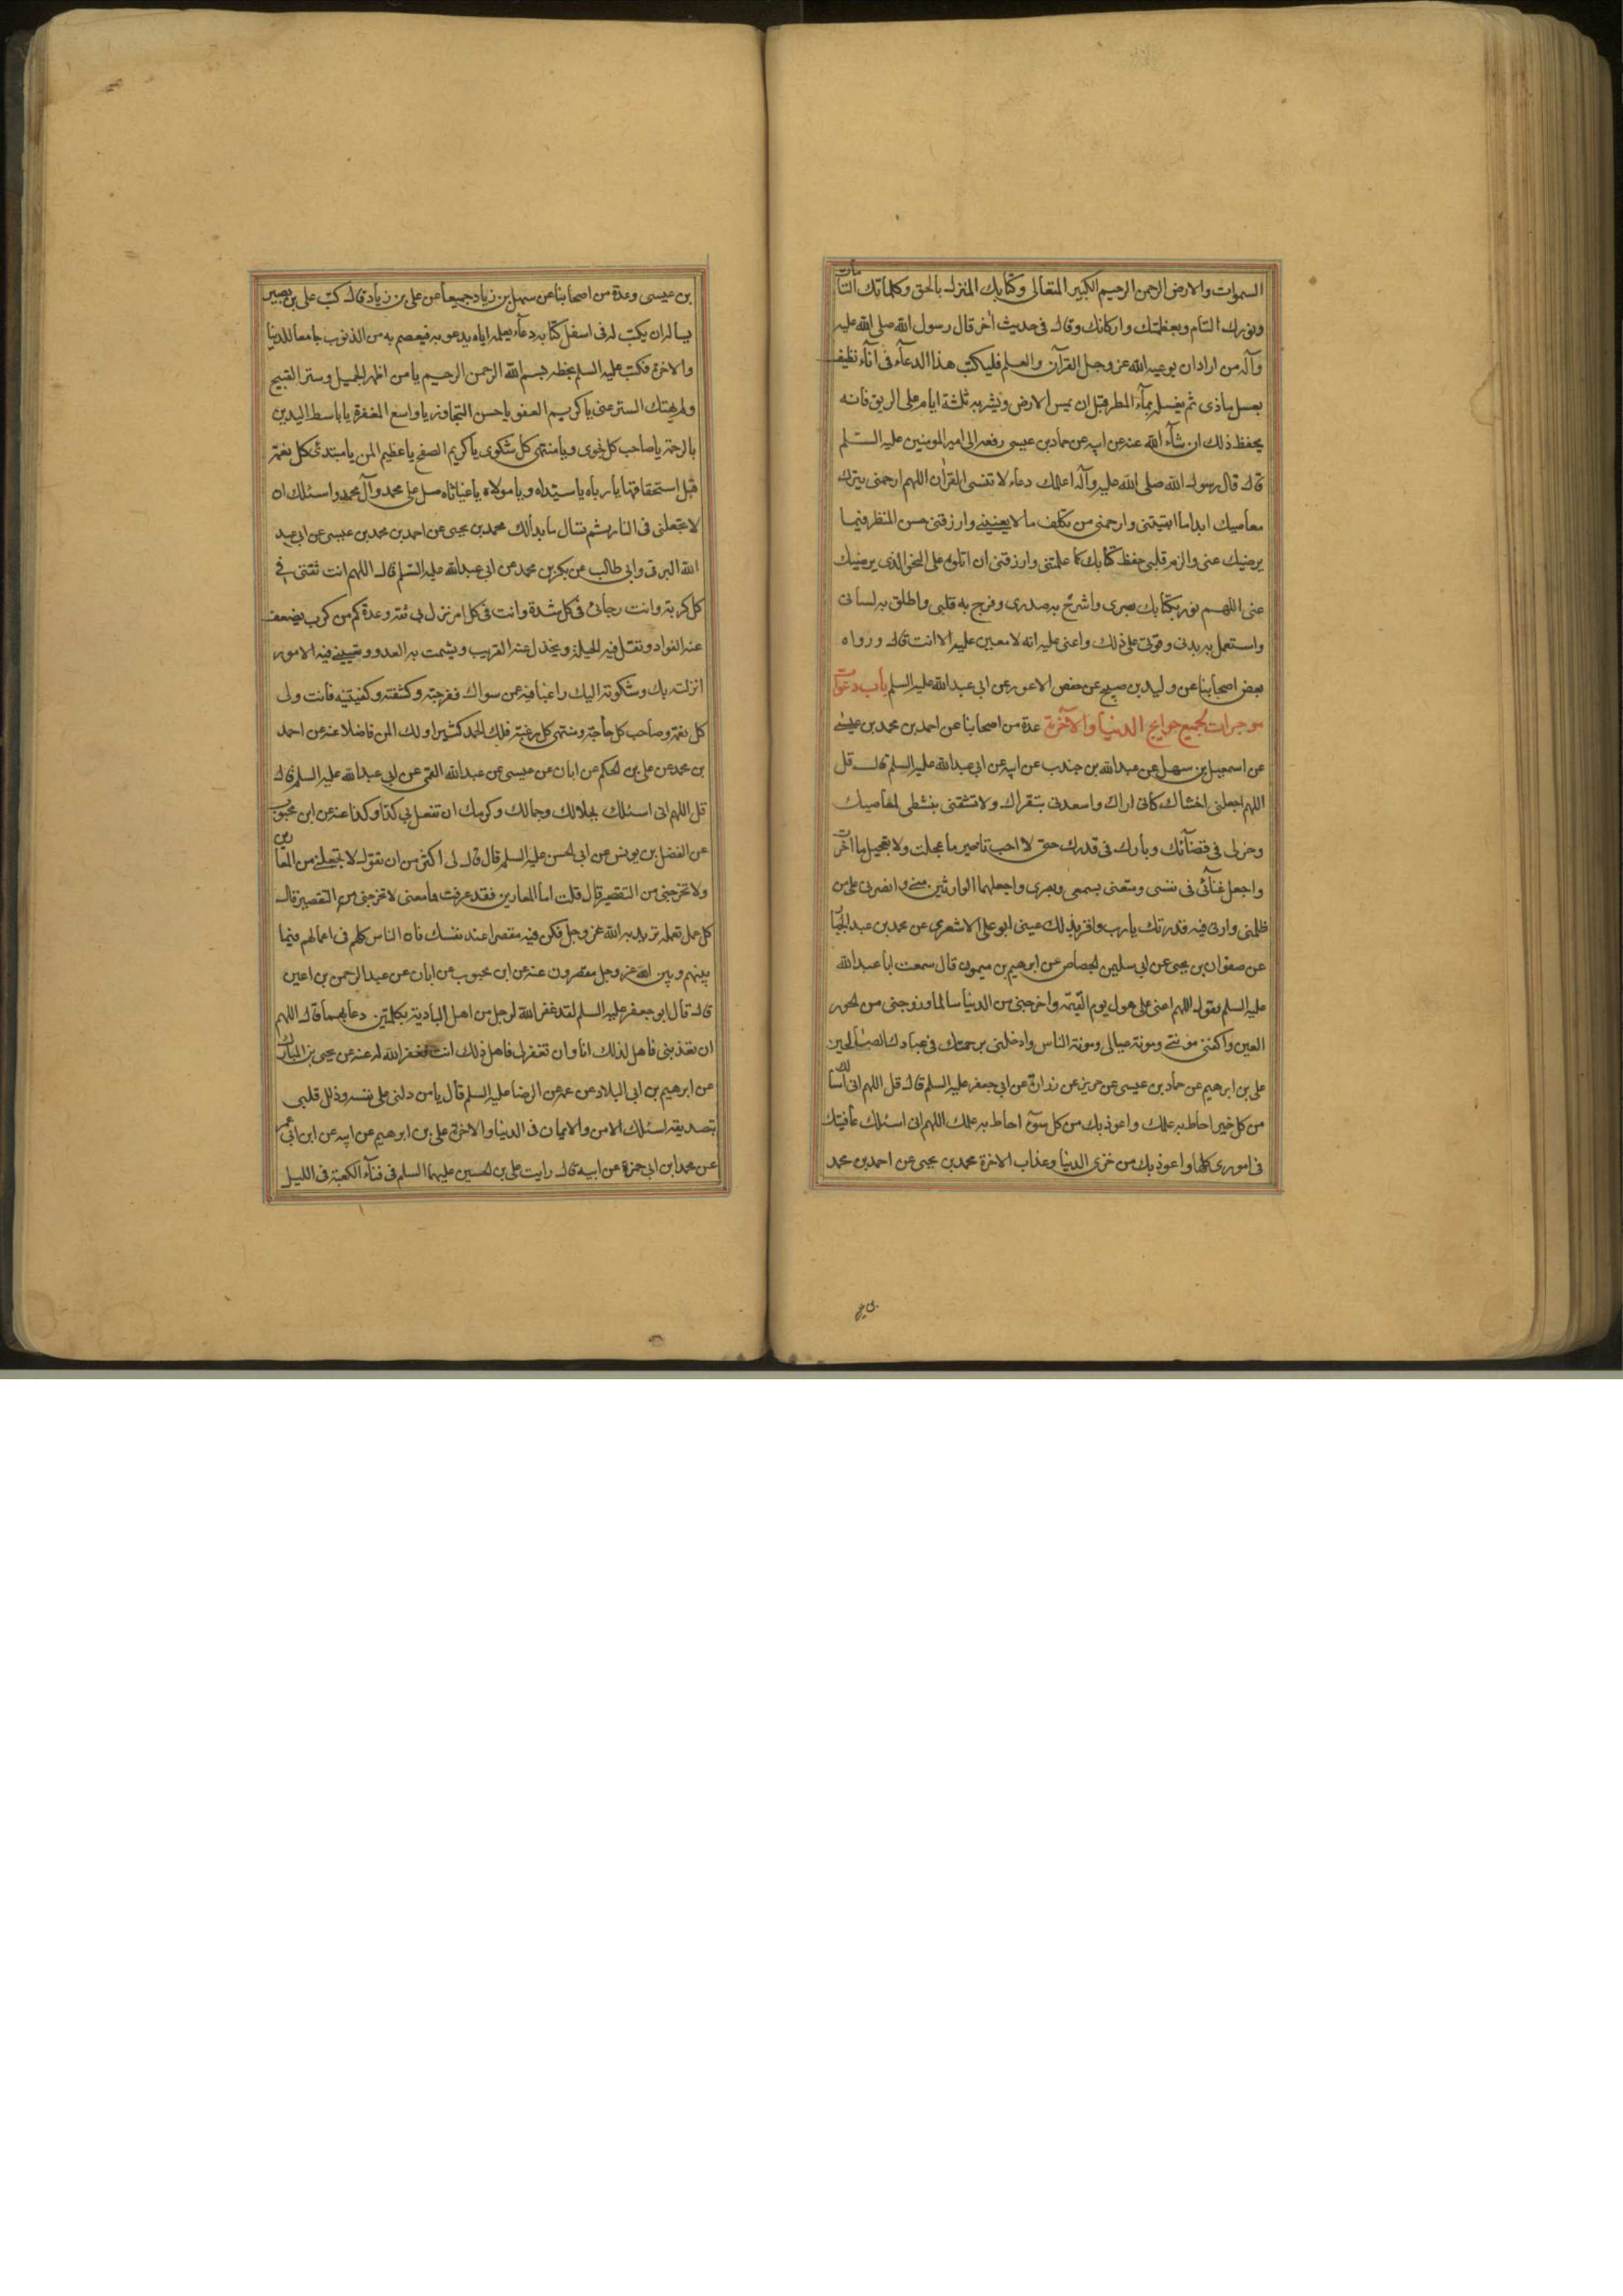 السموات والارض الرحمن الرحيم الكبير المتعالى وكتابك المنزل بالحق وكلماتك التامات
وبنورك التام وبعظمتك واركانك وقال فى حديث اخر قال رسول الله صلى الله عليه
وآله من اراد ان يوعيه الله عز وجل القرآن والعلم فليكتب هذا الدعآء فى اناء نظيف
بعسل ماذى ثم يغسله بمآء المطر قبل ان يمس الارض ويشربه ثلثة ايام على الريق فانه
يحفظ ذلك ان شآء الله عنه عن ابيه عن حماد بن عيسى رفعه الى امير المومنين عليه السلم
قال قال رسول الله صلى الله عليه وآله اعلمك دعاء لا تنسى القران اللهم ارحمنى بترك
معاصيك ابدا ما ابقيتنى وارحمنى من تكلف ما لا يعنينى وارزقنى حسن المنظر فيما
يرضيك عنى والزم قلبى حفظ كتابك كما علمتنى وارزقنى ان اتلوه على النحو الذى يرضيك
عنى اللهم نور بكتابك بصرى واشرح به صدرى وفرح به قلبى واطلق به لسانى
واستعمل به بدنى وقونى على ذلك واعنى عليه انه لا معين عليه الا انت قال ورواه
بعض اصحابنا عن وليد بن صبيح عن حفص الاعور عن ابى عبد الله عليه السلم باب دعوات
موجرات لجميع حوايج الدنيا والآخرة عدة من اصحابنا عن احمد بن محمد بن عيسى
عن اسمعيل بن سهل عن عبد الله بن جندب عن ابيه عن ابى عبد الله عليه السلم قال قل
اللهم اجعلنى اخشاك كانى اراك واسعدنى بتقواك ولا تشقنى بنشطى لمعاصيك
وخر لى فى قضآئك وبارك فى قدرك حتى لا احب تاخير ما عجلت ولا تعجيل ما اخرت
واجعل غنآئى فى نفسى ومتعنى بسمعى وبصرى واجعلهما الوارثين منى وانصرنى على من
ظلمنى وارنى فيه قدرتك يا رب واقر بذلك عينى ابو على الاشعرى عن محمد بن عبد الجبار
عن صفوان بن يحيى عن ابى سليمن الجصاص عن ابرهيم بن ميمون قال سمعت ابا عبد الله
عليه السلم يقول اللهم اعنى على هول يوم القيمة واخرجنى من الدنيا سالما وزوجنى من الحور
العين واكفنى مونتى ومونة عيالى ومونة الناس وادخلنى برحمتك فى عبادك الصالحين
على بن ابرهيم عن حماد بن عيسى عن حريز عن زرارة عن ابى جعفر عليه السلم قال قل اللهم انى اسالك
من كل خير احاط به علمك واعوذ بك من كل سوء احاط به علمك اللهم انى اسئلك عافيتك
فى امورى كلها واعوذ بك من خزى الدنيا وعذاب الاخرة محمد بن يحيى عن احمد بن محمد
بن عيسى وعدة من اصحابنا عن سهل بن زياد جميعا عن على بن زياد قال كتب على بن بصير
يساله ان يكتب له فى اسفل كتابه دعآء يعلمه اياه يدعو به فيعصم به من الذنوب جامعا للدنيا
والاخرة فكتب عليه السلم بخطه بسم الله الرحمن الرحيم يا من اظهر الجميل وستر القبيح
ولم يهتك الستر عنى يا كريم العفو يا حسن التجاوز يا واسع المغفرة يا باسط اليدين
بالرحمة يا صاحب كل نجوى ويا منتهى كل شكوى يا كريم الصفح يا عظيم المن يا مبتدئ كل نعمة
قبل استحقاقها يا رباه يا سيداه ويا مولاه يا غياثاه صل على محمد وآل محمد واسئلك ان
لا تجعلنى فى النار ثم تسال ما بدا لك محمد بن يحيى عن احمد بن محمد بن عيسى عن ابى عبد
الله البرقى وابى طالب عن بكر بن محمد عن ابى عبد الله عليه السلم قال اللهم انت ثقتى فى
كل كربة وانت رجائى فى كل شدة وانت فى كل امر نزل بى ثقة وعدة كم من كرب يضعف
عنه الفواد وتقل فيه الحيلة ويخذل عنه القريب ويشمت به العدو وتعيينى فيه الامور
انزلته بك وشكوته اليك راغبا فيه عن سواك ففرجته وكشفته وكفيتنيه فانت ولى
كل نعمة وصاحب كل حاجة ومنتهى كل رغبة فلك الحمد كثيرا ولك المن فاضلا عنه عن احمد
بن محمد عن على بن الحكم عن ابان عن عيسى عن عبد الله القمى عن ابى عبد الله عليه السلم قال
قل اللهم انى اسئلك بجلالك وجمالك وكرمك ان تفعل بى كذا وكذا عنه عن ابن محبوب
عن الفضل بن يونس عن ابى الحسن عليه السلم قال قال لى اكثر من ان تقول لا تجعلنى من المعارين
ولا تخرجنى من التقصير قال قلت اما المعارين فقد عرفت فما معنى لا تخرجنى من التقصير قال
كل عمل تعمله تريد به الله عز وجل فكن فيه مقصرا عند نفسك فان الناس كلهم فى اعمالهم فيما
بينهم وبين الله عز وجل مقصرون عنه عن ابن محبوب عن ابان عن عبد الرحمن بن اعين
قال قال ابو جعفر عليه السلم لقد غفر الله لرجل من اهل البادية بكلمتين دعا بهما قال اللهم
ان تعذبنى فاهل لذلك انا وان تغفر لى فاهل ذلك انت فغفر الله له عنه عن يحيى بن المبارك
عن ابرهيم بن ابى البلاد عن عمه عن الرضا عليه السلم قال يا من دلنى على نفسه وذلل قلبى
بتصديقه اسئلك الامن والايمان فى الدنيا والاخرة على بن ابرهيم عن ابيه عن ابن ابى عمير
عن محمد ابن ابى حمزة عن ابيه قال رايت على بن الحسين عليهما السلم فى فنآء الكعبة فى الليل